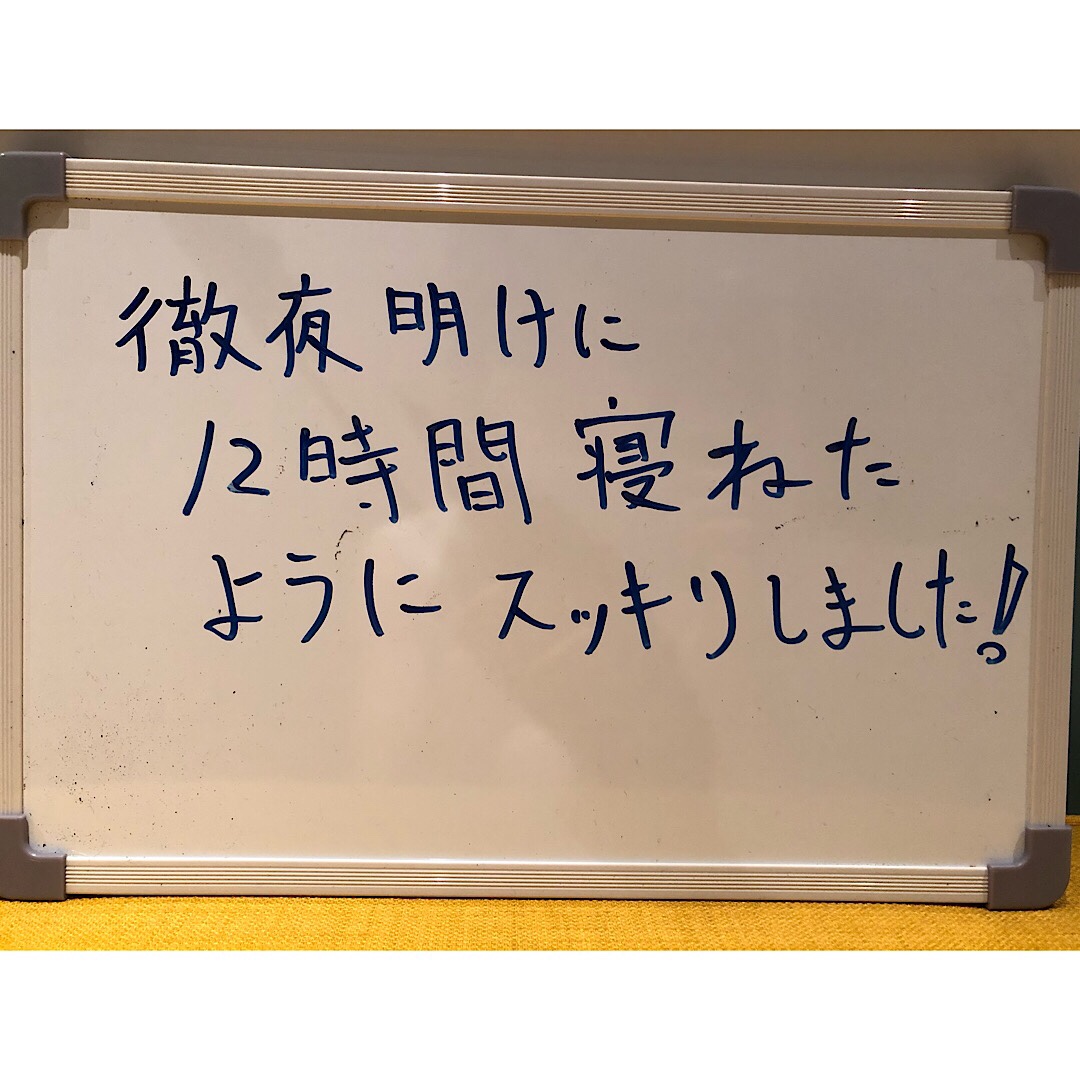 徹夜明けに
12時間寝ねた
ようにスッキリしました!